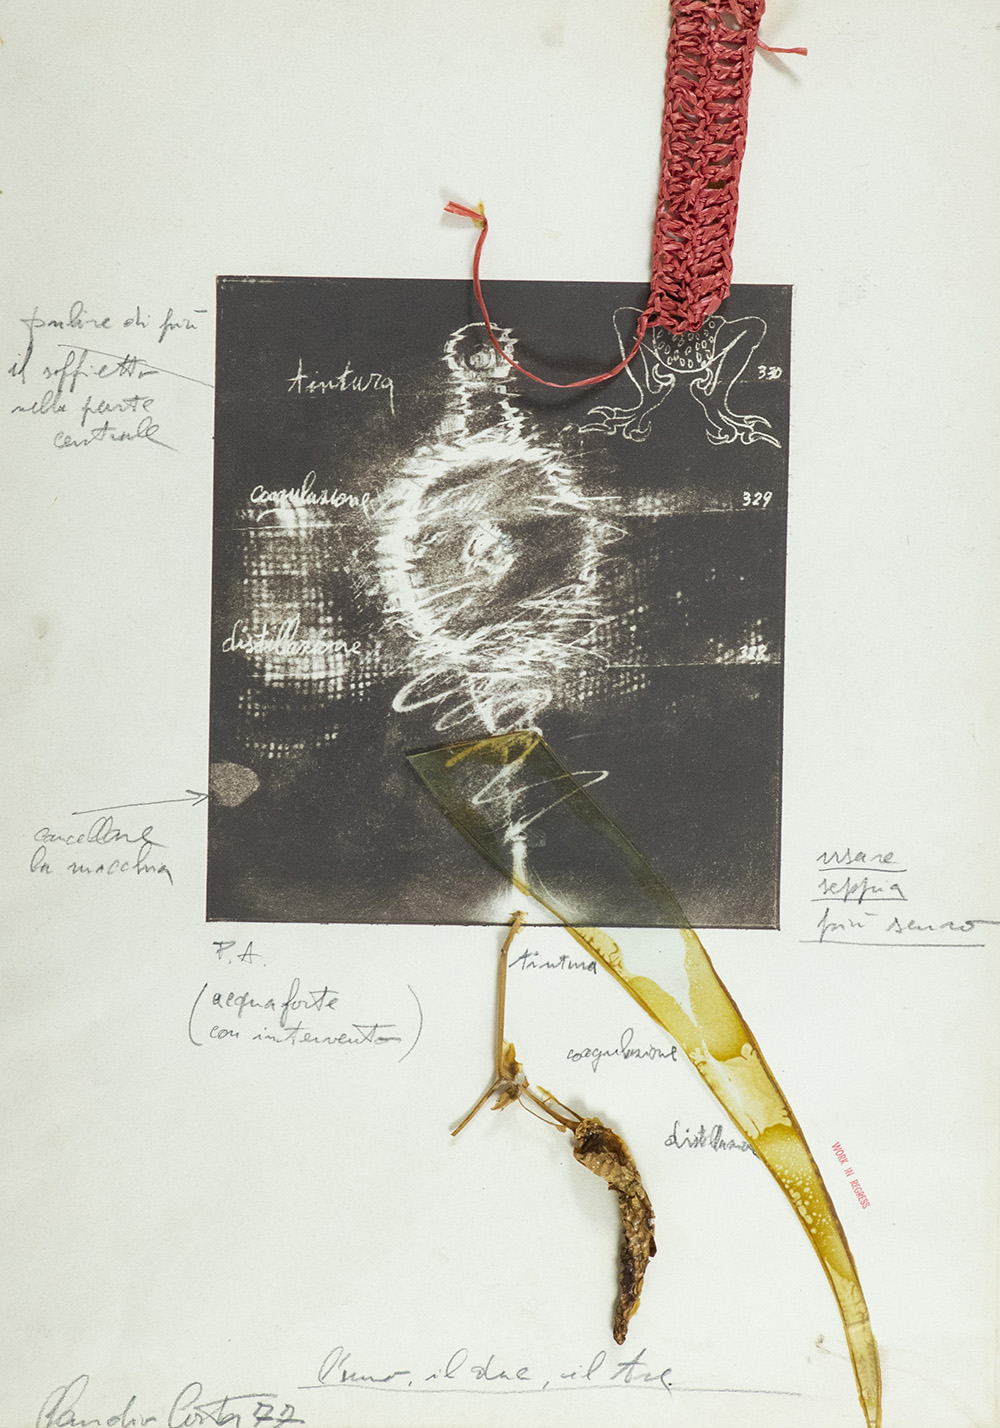 pulire di più
il soffietto
nella parte
centrale
tintura
330
coagulazione
329
distillazione
328
cancellare
la macchia
usare
seppia
più scuro
P.A.
(acquaforte
con intervento)
tintura
coagulazione
distillazione
WORK IN REGRESS
l'uno, il due, il tre
Claudio Costa 77